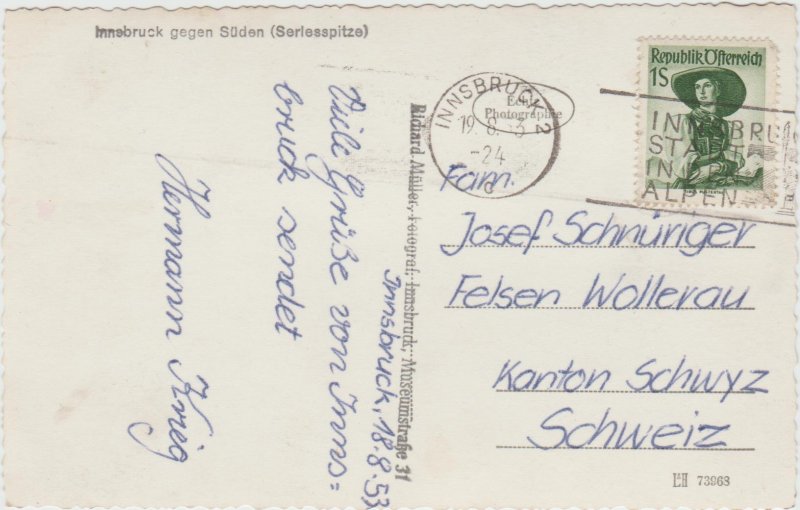 Innsbruck gegen Süden (Serlesspitze)
Innsbruck, 18.8.53
Viele Grüße von Inns=
bruck sendet
Hermann Krieg
Richard Müller, Fotograf, Innsbruck, Museumstraße 31
Echte
Photographie
INNSBRUCK 2
19. 8. 53
-24
c
Republik Österreich
1S
INNSBRUCK
STADT
IN
ALPEN
Fam.
Josef Schnüriger
Felsen Wollerau
Kanton Schwyz
Schweiz
73963